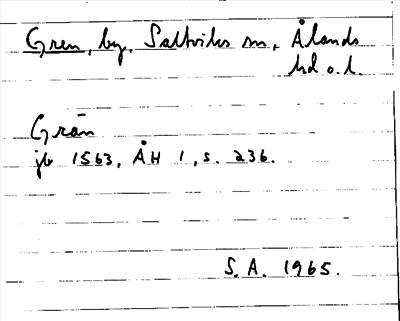 Gren, by, Saltviks sn, Ålands
hd o. l.
Grän
jb 1563, ÅH 1, s. 236.
S.A. 1965.